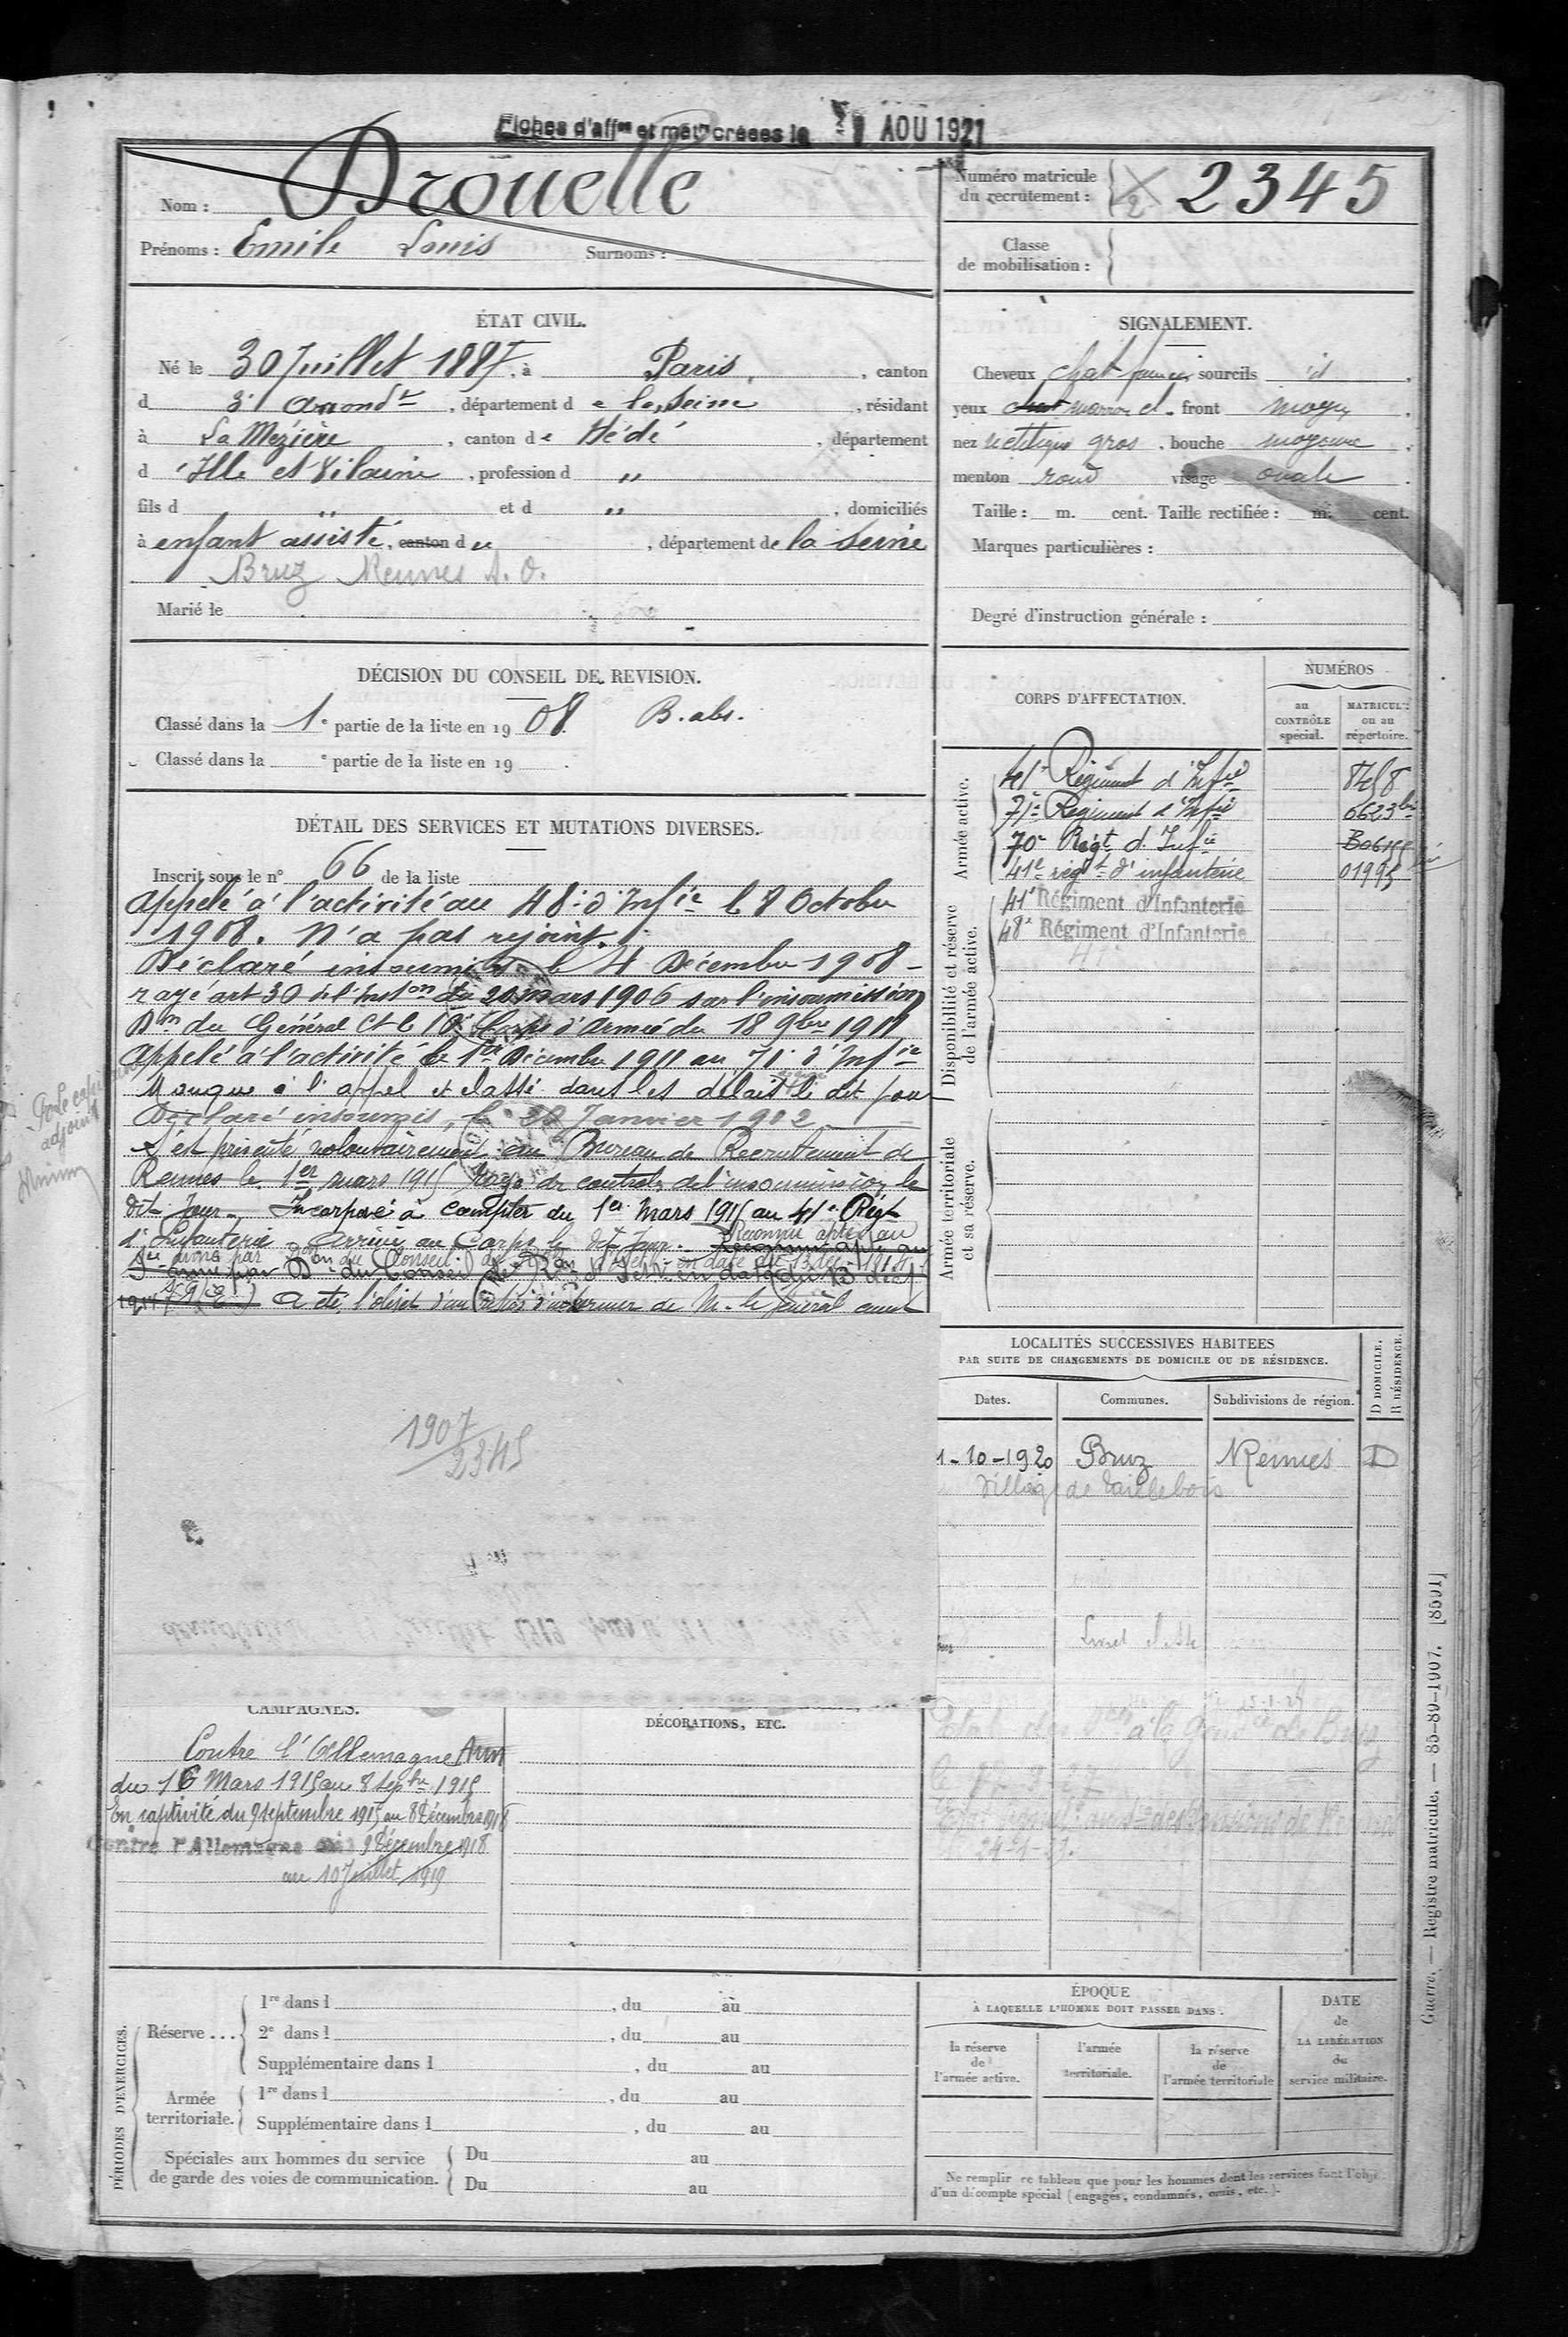 Fiches d'aff<sup>on</sup> et mat<sup>le</sup> créées le AOU 1921
Nom : Drouelle
Prénoms : Emile Louis Surnoms :
Numéro matricule du recrutement : 2345
Classe de mobilisation :
ÉTAT CIVIL.
Né le 30 Juillet 1887, à Paris, canton
d 3e arrondt, département de la Seine, résidant
à La Mézière, canton de Hédé, département
d'Ille et Vilaine, profession d "
fils d " et d ", domiciliés
à enfant assisté, canton d, département de la Seine
Bruz Rennes
Marié le
SIGNALEMENT.
Cheveux chat foncé sourcils id
yeux marron cl. front moyen
nez rectiligne gros, bouche moyenne
menton rond visage ovale
Taille : m. cent. Taille rectifiée : m. cent.
Marques particulières :
Degré d'instruction générale :
DÉCISION DU CONSEIL DE REVISION.
Classé dans la 1e partie de la liste en 1908 B. abs.
Classé dans la e partie de la liste en 19 .
CORPS D'AFFECTATION.
NUMÉROS
au CONTRÔLE spécial.
MATRICULE ou au répertoire.
Armée active.
41e Régiment d'Infie
71e Régiment d'Infie 6623 bis
70e Régt d'Infie
41e régt d'infanterie 01995
Disponibilité et réserve de l'armée active.
41e Régiment d'Infanterie
48e Régiment d'Infanterie
Armée territoriale et sa réserve.
DÉTAIL DES SERVICES ET MUTATIONS DIVERSES.
Inscrit sous le n° 66 de la liste
Appelé à l'activité au 48e d'Infie le 8 Octobre
1908. N'a pas rejoint.
Déclaré insoumis le 4 Décembre 1908 -
rayé art 30 de l'Inston du 20 mars 1906 sur l'insoumission
Don du Général Ct le 10e Corps d'Armée du 18 9bre 1911
Appelé à l'activité le 1er Décembre 1911 au 71e d'Infie
Manque à l'appel et dans les délais le dit jour
Déclaré insoumis, le Janvier 1912
S'est présenté volontairement au Bureau de Recrutement de
Rennes le 1er mars 1915 Rayé des contrôles de l'insoumission le
dit Jour. Incorporé à compter du 1er Mars 1915 au 41e Régt
d'Infanterie - Arrivé au Corps le dit Jour. Reconnu apte au
Sce armé par Don du Conseil de Ron en date du 13 déc 1914
A été l'objet d'un refus d'informer de M. le Général
1907
2345
LOCALITÉS SUCCESSIVES HABITÉES
PAR SUITE DE CHANGEMENTS DE DOMICILE OU DE RÉSIDENCE.
Dates. Communes. Subdivisions de région. D DOMICILE. R RÉSIDENCE.
1-10-1920 Bruz Rennes D
Village de Taillebois
CAMPAGNES.
Contre l'Allemagne
du 16 Mars 1915 au 8 Septbre 1915
En captivité du 9 Septembre 1915 au 8 Décembre 1918
Contre l'Allemagne du 9 Décembre 1918
au 10 Juillet 1919
DÉCORATIONS, ETC.
PÉRIODES D'EXERCICES.
Réserve ... 1re dans l , du au
2e dans l , du au
Supplémentaire dans l , du au
Armée territoriale. 1re dans l , du au
Supplémentaire dans l , du au
Spéciales aux hommes du service de garde des voies de communication. Du au
Du au
ÉPOQUE
À LAQUELLE L'HOMME DOIT PASSER DANS :
la réserve de l'armée active.
l'armée territoriale.
la réserve de l'armée territoriale
DATE de LA LIBÉRATION du service militaire.
Ne remplir ce tableau que pour les hommes dont les services font l'objet
d'un décompte spécial (engagés, condamnés, omis, etc.).
Guerre. — Registre matricule. — 85-89-1907. [8591]